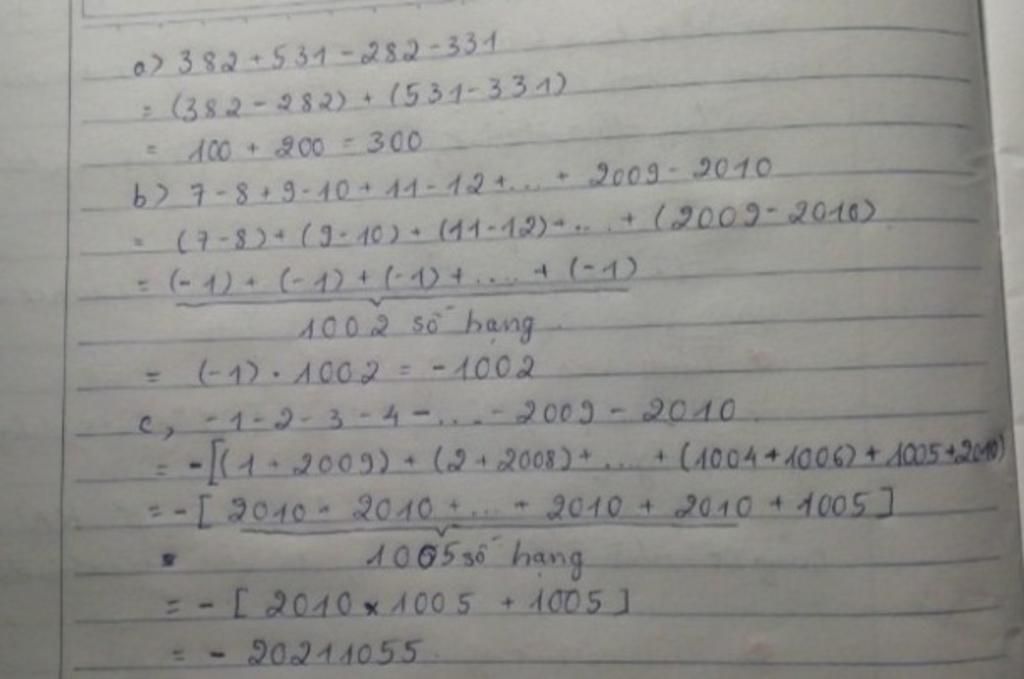 a) 382 + 531 - 282 - 331
= (382 - 282) + (531 - 331)
= 100 + 200 = 300
b) 7 - 8 + 9 - 10 + 11 - 12 + ... + 2009 - 2010
= (7 - 8) + (9 - 10) + (11 - 12) + ... + (2009 - 2010)
= (-1) + (-1) + (-1) + .... + (-1)
1002 số hạng
= (-1) . 1002 = -1002
c, -1 - 2 - 3 - 4 - ... - 2009 - 2010
= -[(1 + 2009) + (2 + 2008) + .... + (1004 + 1006) + 1005 + 2010)
= -[ 2010 + 2010 + ... + 2010 + 2010 + 1005 ]
1005 số hạng
= - [ 2010 x 1005 + 1005 ]
= - 20211055